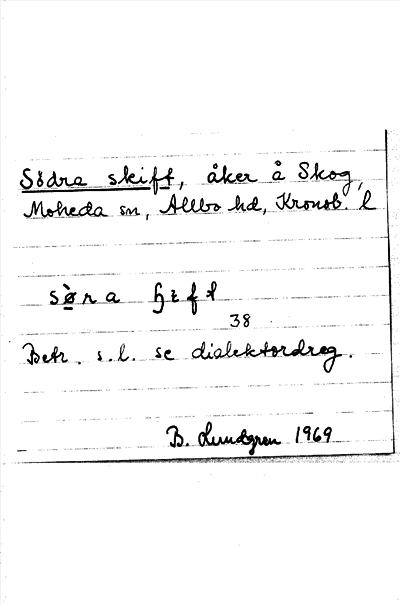 Södra skift, åker å Skog,
Moheda sn, Allbo hd, Kronob. l
sø̀ra ɧɩft
38
Betr. s.l. se dialektordreg.
B. Lundgren 1969